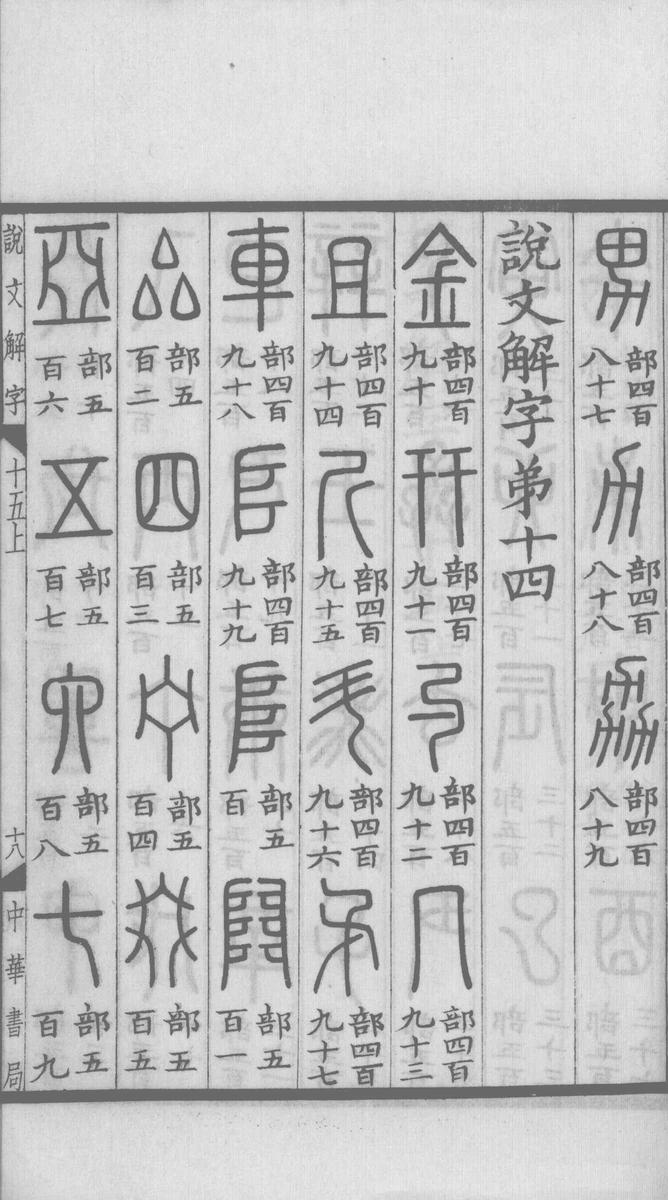 男部四百八十七力部四百八十八劦部四百八十九
說文解字弟十四
金部四百九十幵部四百九十一勺部四百九十二几部四百九十三
且部四百九十四斤部四百九十五斗部四百九十六矛部四百九十七
車部四百九十八𠂤部四百九十九𨸏部五百𨺅部五百一
厽部五百二四部五百三宁部五百四叕部五百五
亞部五百六五部五百七六部五百八七部五百九
說文解字 十五上 十八 中華書局